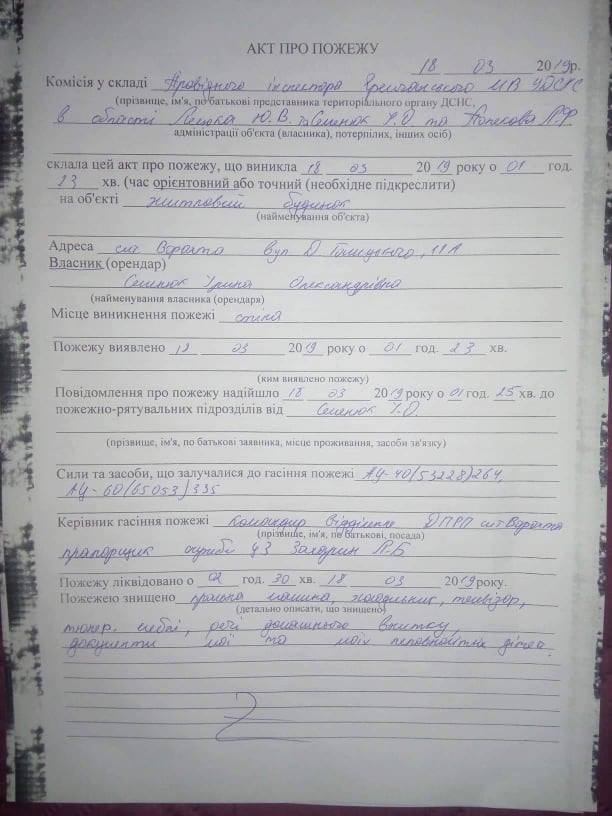 АКТ ПРО ПОЖЕЖУ
18 03 2019р.
Комісія у складі Провідного інспектора МВ УДСНС
(прізвище, ім'я, по батькові представника територіального органу ДСНС,
в області Ю.В. Семенюк І.О та Л.Ф
адміністрації об'єкта (власника), потерпілих, інших осіб)
склала цей акт про пожежу, що виникла 18 03 2019 року о 01 год.
23 хв. (час орієнтовний або точний (необхідне підкреслити)
на об'єкті житловий будинок
(найменування об'єкта)
Адреса смт Ворохта вул Д Галицького, 11А
Власник (орендар)
Семенюк Ірина Олександрівна
(найменування власника (орендаря)
Місце виникнення пожежі стіна
Пожежу виявлено 18 03 2019 року о 01 год. 23 хв.
(ким виявлено пожежу)
Повідомлення про пожежу надійшло 18 03 2019 року о 01 год. 25 хв. до
пожежно-рятувальних підрозділів від Семенюк І.О.
(прізвище, ім'я, по батькові заявника, місце проживання, засоби зв'язку)
Сили та засоби, що залучалися до гасіння пожежі АЦ-40(53228)264,
АЦ-60(65053)335
Керівник гасіння пожежі Командир відділення ДПРП смт Ворохта
(прізвище, ім'я, по батькові, посада)
прапорщик служби цз Захарин Л-Б
Пожежу ліквідовано о 02 год. 30 хв. 18 03 2019року.
Пожежею знищено пральна машина, холодильник, телевізор,
(детально описати, що знищено)
тюнер, меблі, речі домашнього вжитку,
документи мої та моїх неповнолітніх дітей.